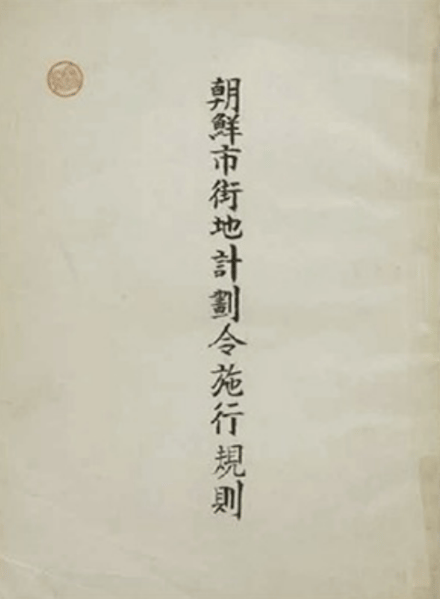 朝鮮市街地計劃令施行規則